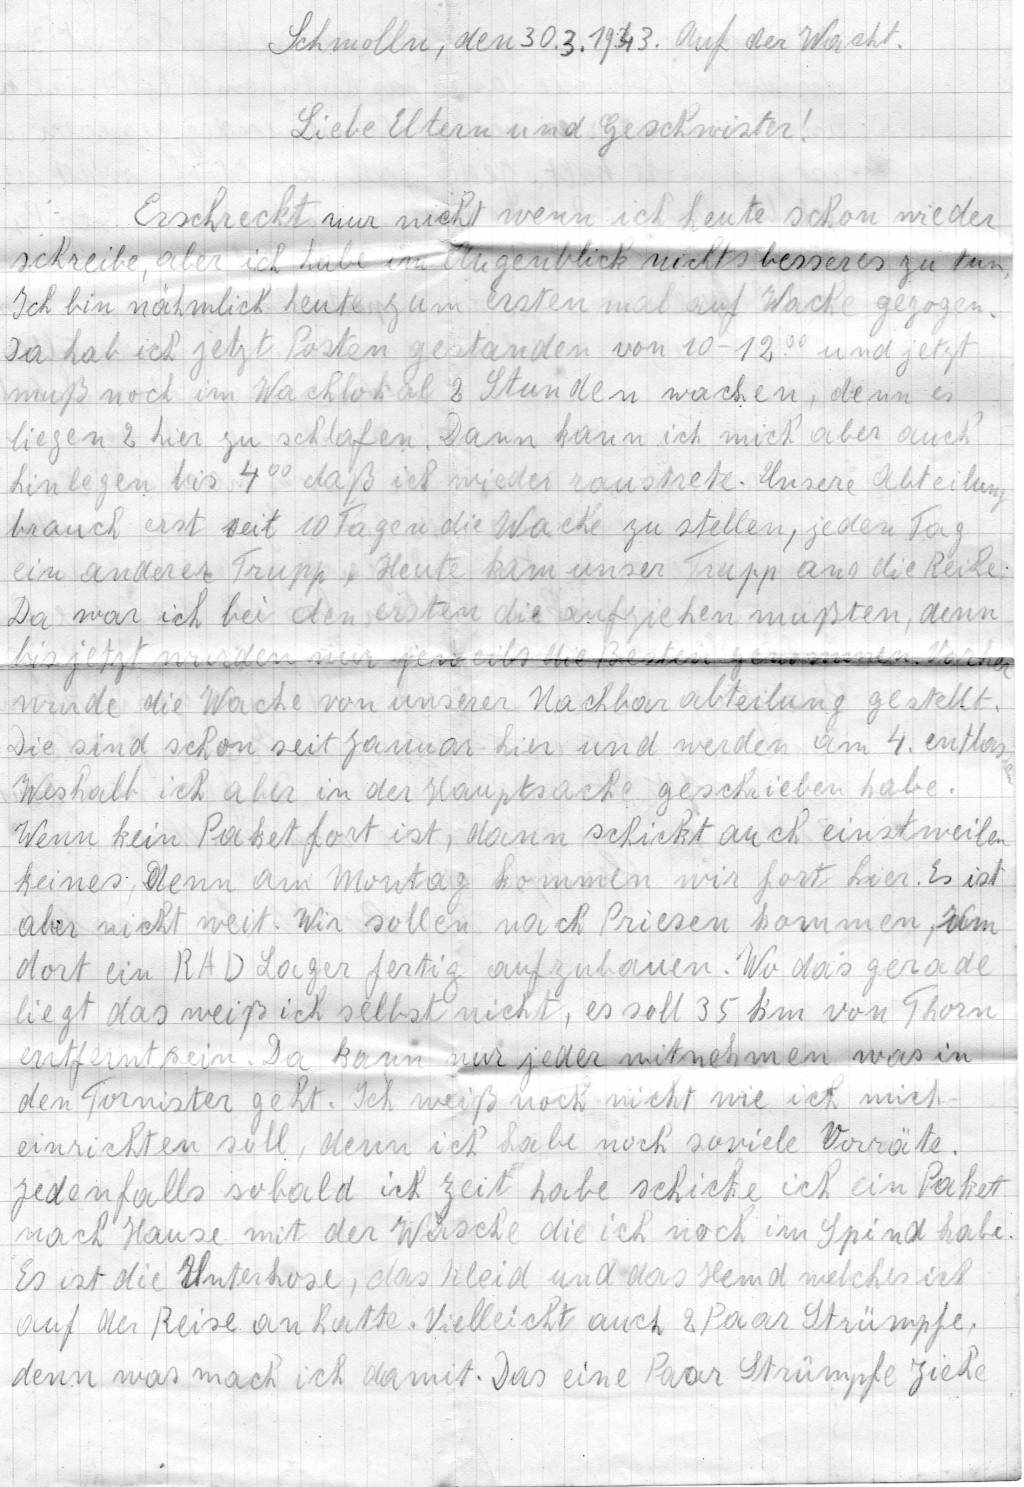 Schmolln, den 30.3.1943. Auf der Wacht.
Liebe Eltern und Geschwister!
Erschreckt nur nicht wenn ich heute schon wieder
schreibe, aber ich habe im Augenblick nichts besseres zu tun,
Ich bin nähmlich heute zum ersten mal auf Wache gezogen.
Da hab ich jetzt Posten gestanden von 10-12⁰⁰ und jetzt
muß noch im Wachlokal 2 Stunden wachen, denn es
liegen 2 hier zu schlafen. Dann kann ich mich aber auch
hinlegen bis 4⁰⁰ daß ich wieder raustrete. Unsere Abteilung
brauch erst seit 10 Tagen die Wache zu stellen, jeden Tag
ein anderer Trupp, Heute kam unser Trupp ans die Reihe.
Da war ich bei den ersten die aufziehen mußten, denn
bis jetzt wurden nur jeweils die Besten genommen. Vorher
wurde die Wache von unserer Nachbarabteilung gestellt.
Die sind schon seit Januar hier und werden am 4. entlassen
Weshalb ich aber in der Hauptsache geschrieben habe.
Wenn kein Paket fort ist, dann schickt auch einstweilen
keines, denn am Montag kommen wir fort hier. Es ist
aber nicht weit. Wir sollen nach Priesen kommen, um
dort ein RAD Lager fertig aufzubauen. Wo das gerade
liegt das weiß ich selbst nicht, es soll 35 km von Thorn
entfernt sein. Da kann nur jeder mitnehmen was in
den Turnister geht. Ich weiß noch nicht wie ich mich
einrichten soll, denn ich habe noch soviele Vorräte.
Jedenfalls sobald ich Zeit habe schicke ich ein Pakett
nach Hause mit der Wäsche die ich noch im Spind habe.
Es ist die Unterhose, das Kleid und das Hemd welches ich
auf der Reise an hatte. Vielleicht auch 2 Paar Strümpfe,
denn was mach ich damit. Das eine Paar Strümpfe ziehe